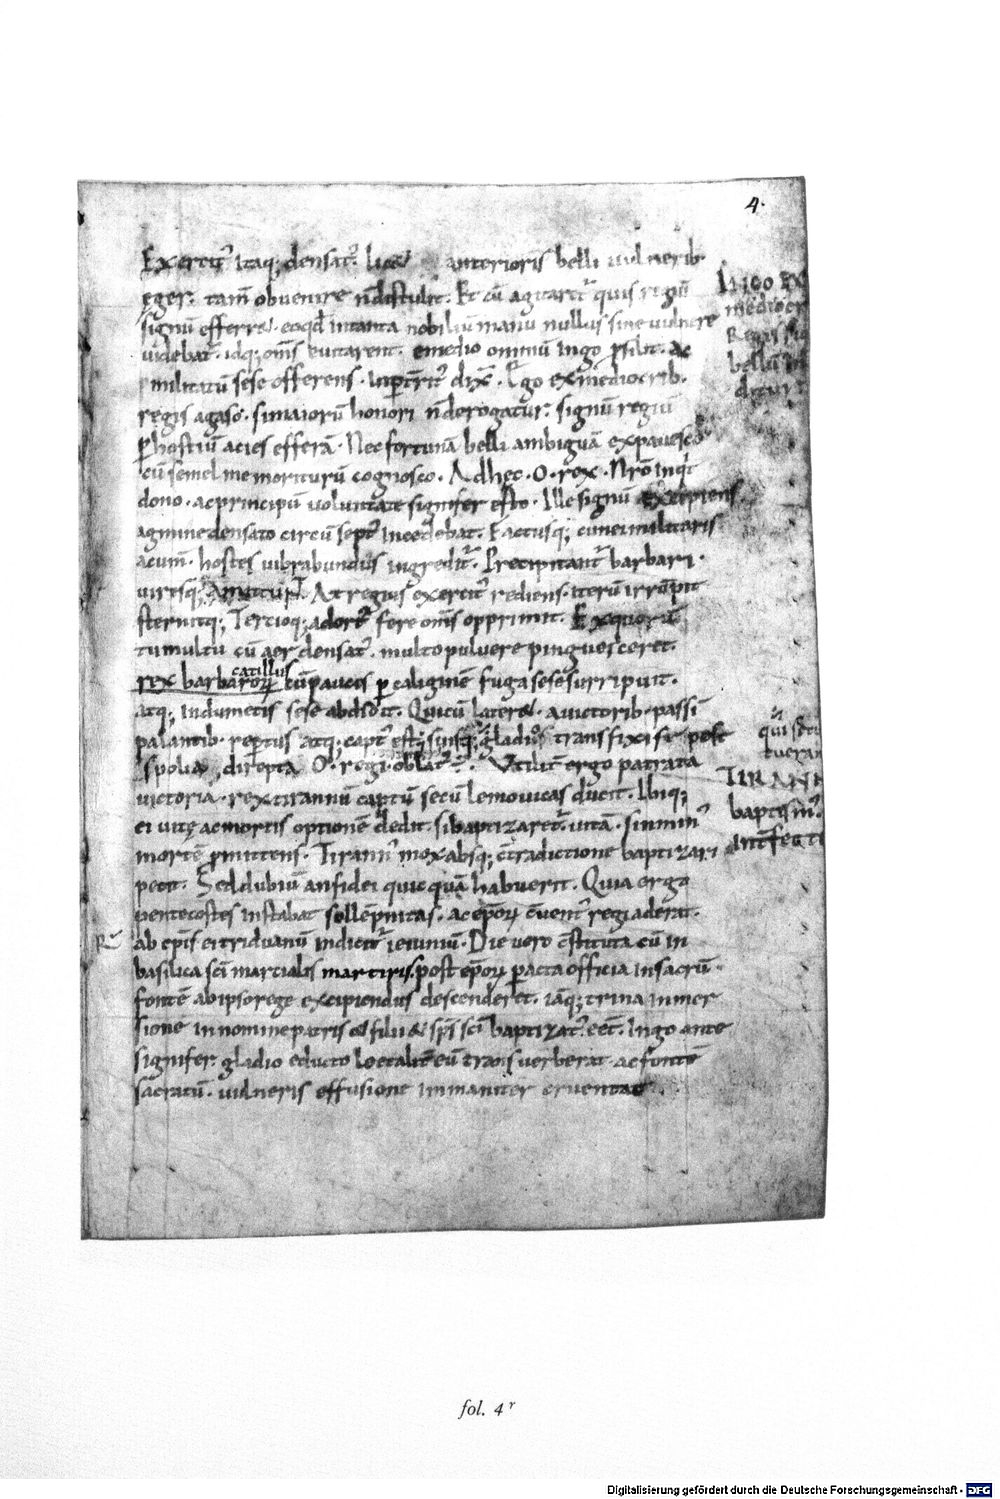 4.
Exercit᷒ itaq; densat᷒. licet anterioris belli uulnerib
ęger. tam̄ obuenire n̄ distulit. Et cū agitaret᷒ quis regiū
signū efferret. eoqđ in tanta nobiliū manu nullus sine uulnere
uidebat᷒. idq; om̄s euitarent. emedio omniū Ingo ꝓsiliit. ac
militatū sese offerens. inꝑt̄rit᷒ dix̄. Ego exmediocrib.
regis agaso. simaiorū honori n̄ derogatur. signū regiū
ꝑ hostiū acies efferā. Nec fortunā belli ambiguā expauesco
cū semel me moriturū cognosco. Ad hęc. O. rex. Nr̄o inqͥt
dono. ac principū uoluntate signifer esto. Ille signū excipiens
agmine densato circū sept᷒ incedebat. Factusq; cunei militaris
acum̄. hostes uibrabundus ingredit᷒. Precipitant᷒ barbari.
uiresq; amittunt. At regius exercit᷒ rediens. iterū irrūpit
sternitq; Tertioq; adort᷒ fere om̄s opprimit. Ex quorū
tumultu cū aer densat᷒. multo puluere pinguesceret.
catillus
rex barbaroꝝ cū paucis ꝑ caliginē fuga sese surripuit.
atq; in dumetis sese abdidit. Qui cū lateret. a uictorib. passī
palantib. reꝑtus atq; capt᷒ est; suisq; gladio transfixis post
spolia direpta O. regi oblat᷒ ē. Utilit̄ ergo patrata
uictoria. rex tirannū captū secū lemouicas ducit. Ibiq;
ei uitę ac mortis optionē dedit. si baptizaret᷒. uitā. sin min᷒
mortē ꝓmittens. Tirann᷒ mox absq; c̄tradictione baptizari
petit. Sed dubiū an fidei quicquā habuerit. Quia ergo
pentecostes instabat sollēpnitas. ac ep̄oꝝ c̄uent᷒ regi aderat.
ab ep̄is ei triduanū indicit᷒ ieiuniū. Die uero c̄stituta cū in
basilica sc̄i martialis martiris. post ep̄oꝝ ꝑacta officia in sacrū
fontē ab ipso rege excipiendus descenderet. iāq; trina inmer
sione in nomine patris et filii et sp̄s sc̄i baptizat᷒ eēt. Ingo ante
signifer gladio educto loetalit̄ eū transuerberat. ac fontē
sacratū. uulneris effusione inmaniter cruentat.
INGO EX
mediocr
Regis
bellū
TIRANN
baptism᷒.
fol. 4 r
Digitalisierung gefördert durch die Deutsche Forschungsgemeinschaft - DFG